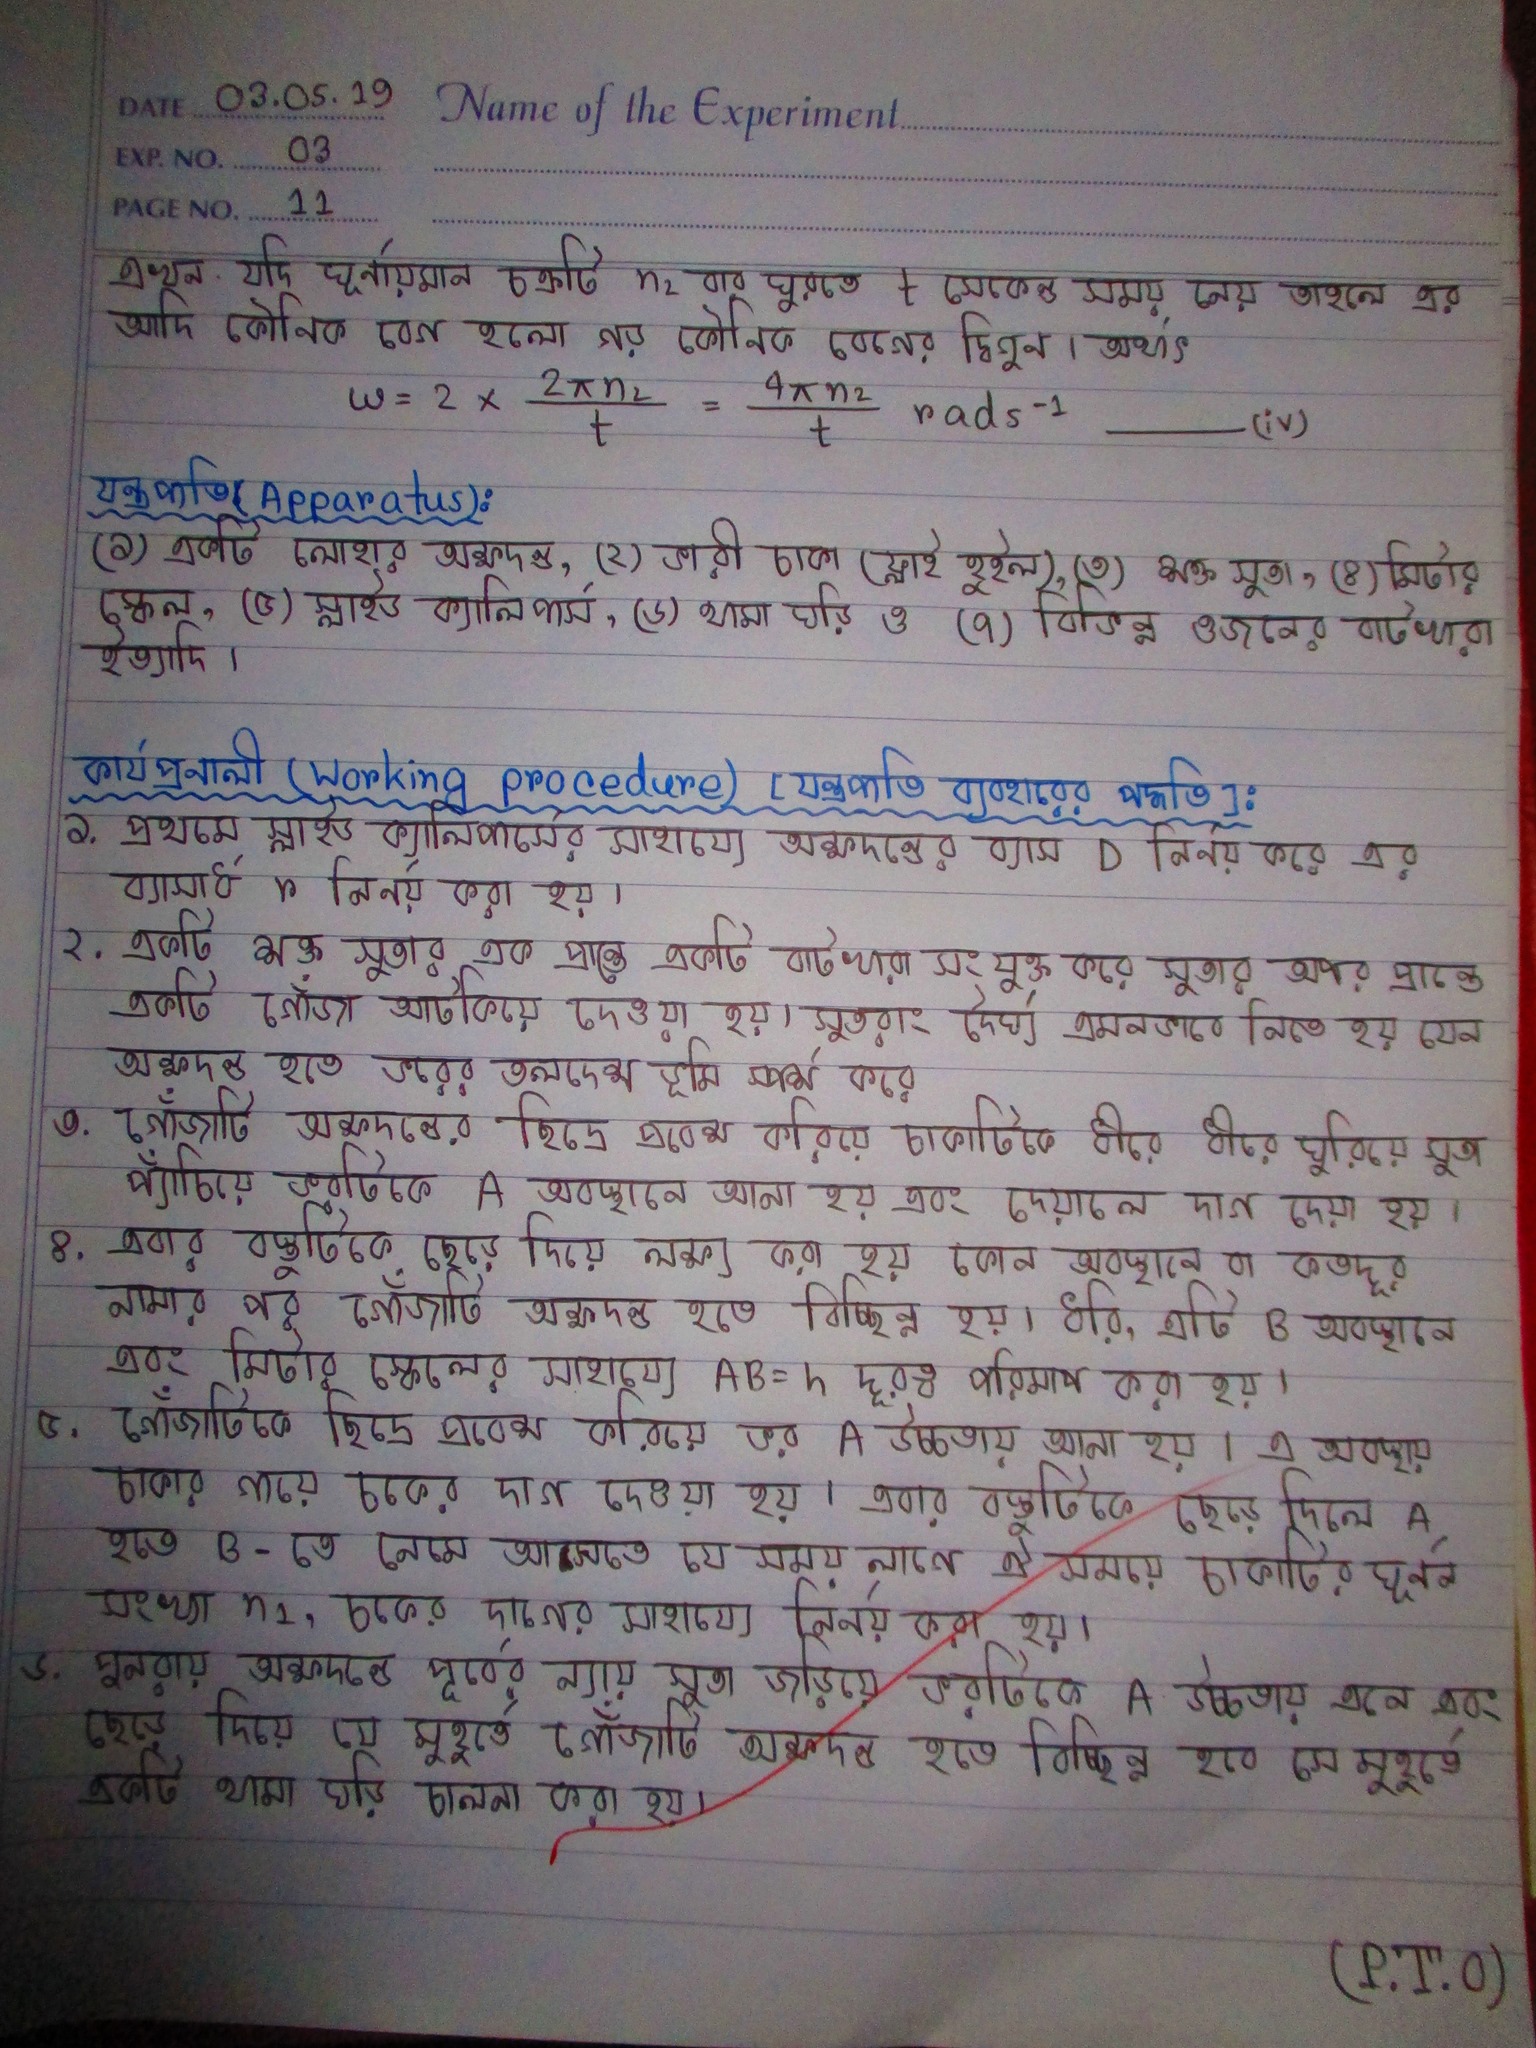 DATE 03.05.19 Name of the Experiment
EXP. NO. 03
PAGE NO. 11
এখন যদি ঘূর্নায়মান চক্রটি n₂ বার ঘুরতে t সেকেন্ড সময় নেয় তাহলে এর
আদি কৌনিক বেগ হলো গড় কৌনিক বেগের দ্বিগুন। অর্থাৎ
ω = 2 × 2πn₂/t = 4πn₂/t rads⁻¹ ——— (iv)
যন্ত্রপাতি (Apparatus):
(১) একটি লোহার অক্ষদন্ড, (২) ভারী চাকা (ফ্লাই হুইল), (৩) শক্ত সুতা, (৪) মিটার
স্কেল, (৫) স্লাইড ক্যালিপার্স, (৬) থামা ঘড়ি ও (৭) বিভিন্ন ওজনের বাটখারা
ইত্যাদি।
কার্যপ্রনালী (Working procedure) [যন্ত্রপাতি ব্যবহারের পদ্ধতি]:
১. প্রথমে স্লাইড ক্যালিপার্সের সাহায্যে অক্ষদন্ডের ব্যাস D নির্নয় করে এর
ব্যাসার্ধ r নির্নয় করা হয়।
২. একটি শক্ত সুতার এক প্রান্তে একটি বাটখারা সংযুক্ত করে সুতার অপর প্রান্তে
একটি গোঁজা আটকিয়ে দেওয়া হয়। সুতরাং দৈর্ঘ্য এমনভাবে নিতে হয় যেন
অক্ষদন্ড হতে ভরের তলদেশ ভূমি স্পর্শ করে
৩. গোঁজাটি অক্ষদন্ডের ছিদ্রে প্রবেশ করিয়ে চাকাটিকে ধীরে ধীরে ঘুরিয়ে সুতা
প্যাঁচিয়ে ভরটিকে A অবস্থানে আনা হয় এবং দেয়ালে দাগ দেয়া হয়।
৪. এবার বস্তুটিকে ছেড়ে দিয়ে লক্ষ্য করা হয় কোন অবস্থানে বা কতদূর
নামার পর গোঁজাটি অক্ষদন্ড হতে বিচ্ছিন্ন হয়। ধরি, এটি B অবস্থানে
এবং মিটার স্কেলের সাহায্যে AB = h দূরত্ব পরিমাপ করা হয়।
৫. গোঁজাটিকে ছিদ্রে প্রবেশ করিয়ে ভর A উচ্চতায় আনা হয়। এ অবস্থায়
চাকার গায়ে চকের দাগ দেওয়া হয়। এবার বস্তুটিকে ছেড়ে দিলে A
হতে B - তে নেমে আসতে যে সময় লাগে ঐ সময়ে চাকাটির ঘূর্নন
সংখ্যা n₁, চকের দাগের সাহায্যে নির্নয় করা হয়।
৬. পুনরায় অক্ষদন্ডে পূর্বের ন্যায় সুতা জড়িয়ে ভরটিকে A উচ্চতায় এনে এবং
ছেড়ে দিয়ে যে মুহূর্তে গোঁজাটি অক্ষদন্ড হতে বিচ্ছিন্ন হবে সে মুহূর্তে
একটি থামা ঘড়ি চালনা করা হয়।
(P.T.O)